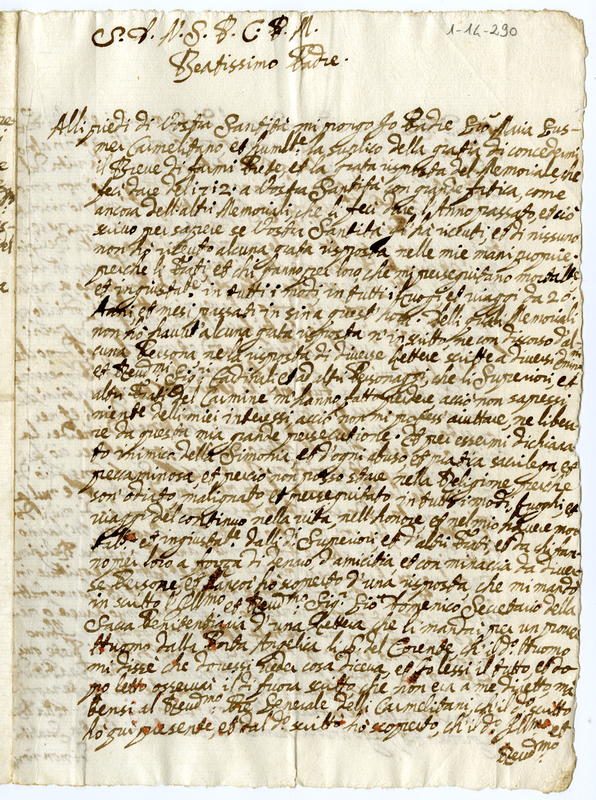 1-14-290
S. V. N. S. P. C. B. M.
Beatissimo Padre.
Alli piedi di Vostra Santità qui pongo Jo Padre Gio: Maria
Carmelitano et la suplico della gratia di concedermi
il Breve di farmi Prete, et la grata risposta del Memoriale, che
feci dare del 1712: a Vostra Santità con grande fatica, come
ancora dell'altri Memoriali, che li feci dare, l'Anno passato, et ciò
scrivo per sapere se Vostra Santità li hà riceuti, et di nissuno
non hò riceuto alcuna grata risposta nelle mie mani proprie:
perche li Frati et chi fanno per loro che mi perseguitano
et ingiust.te in tutti i modi in tutti i luoghi et viaggi da 20:
Anni et mesi passati in sina quest'hora: delli quali Memoriali
non hò hauut'alcuna grata risposta n'in scritto ne con discorso d'al
cuna Persona ne la risposta di diverse lettere scritte a diversi
et Reud.mi Sig.ri Cardinali et ad altri Personaggi, che li Superiori et
altri Frati del Carmine m'hanno fatto perdere acciò non sapessi
niente delli miei interessi acciò non mi potessi aiuttare, ne libera
re da questa mia grande persecutione: Et per essermi dichiara
to nimico della Simonia et d'ogni abuso, et mala sacrilega et
peccaminosa et perciò non posso stare nella Religione perche
son' odiato malignato et perseguitato in tutti i modi, luoghi et
viaggi del continuo nella vita, nell'honore et nel mio havere
et ingiust.te dalli d.i Superiori et d'altri Frati, et da chi fan
no per loro a forza di denaro d'amicitia et con minaccia da diver
se Persone, et hò scoperto d'una risposta che mi mandò
in scritto l'Ill.mo et Reud.mo Sig.r Gio: Domenico Secretario della
Sacra Penitentiaria d'una lettera che li mandai per un pover
Huomo dalla Porta Angelica li 6: del Corente ch'il d.o Huomo
mi disse che dovessi che cosa diceva, et Jo lessi il tutto, et do
po letto osservai il di fuora scritto che non era a me diretto ma
bensi al Reud.mo P're Generale delli Carmelitani, ch'il d.o scritto
hò qui presente et dal d.o scritto hò scoperto, ch'il d.o Ill.mo et
Reud.mo